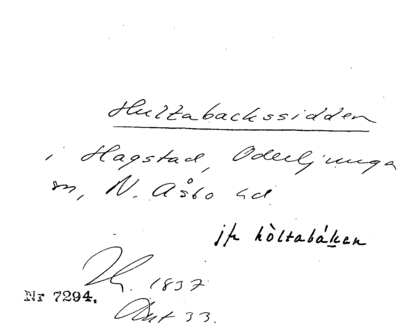 Hultabackssidden
i Hagstad, Oderljunga
sn, N. Åsbo hd.
jfr hòltabáken
1837
Nr 7294.
Akt 33.